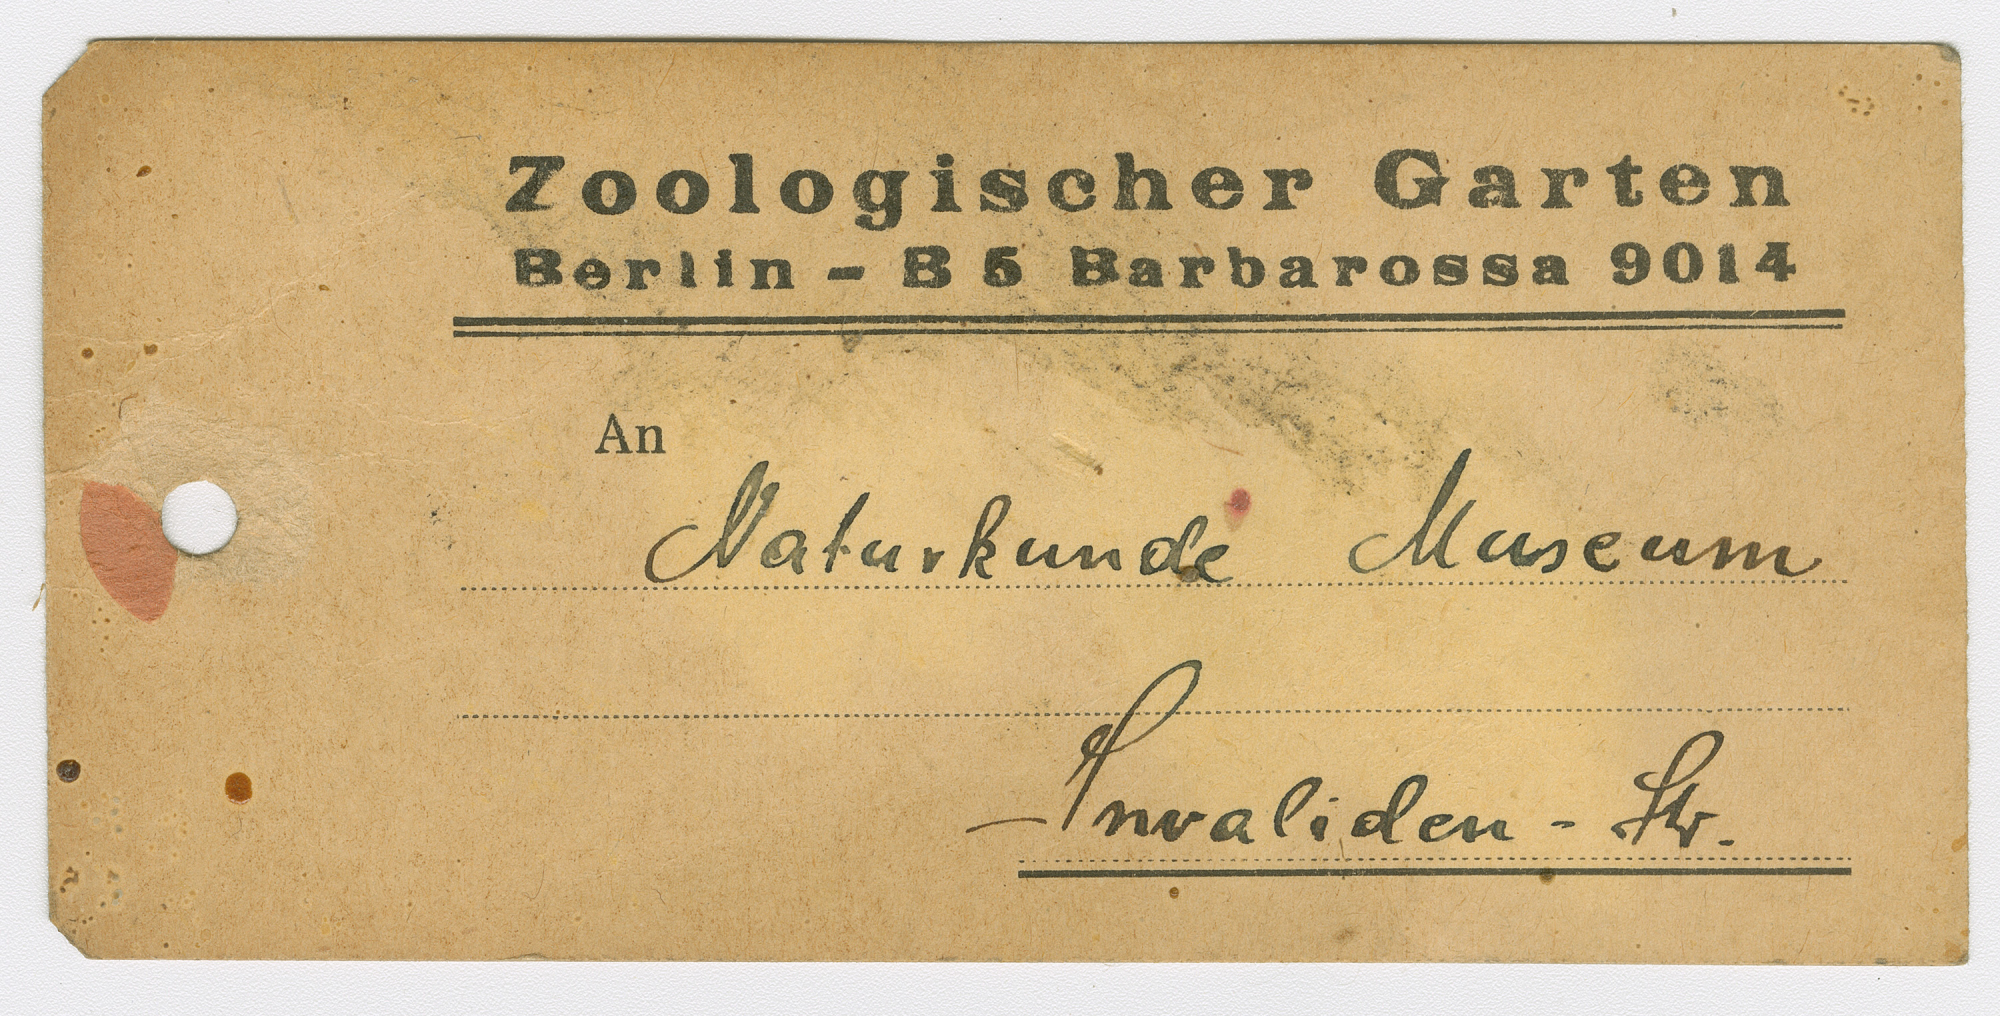 Zoologischer Garten
Berlin - B 5 Barbarossa 9014
An
Naturkunde Museum
- Invaliden - Str.